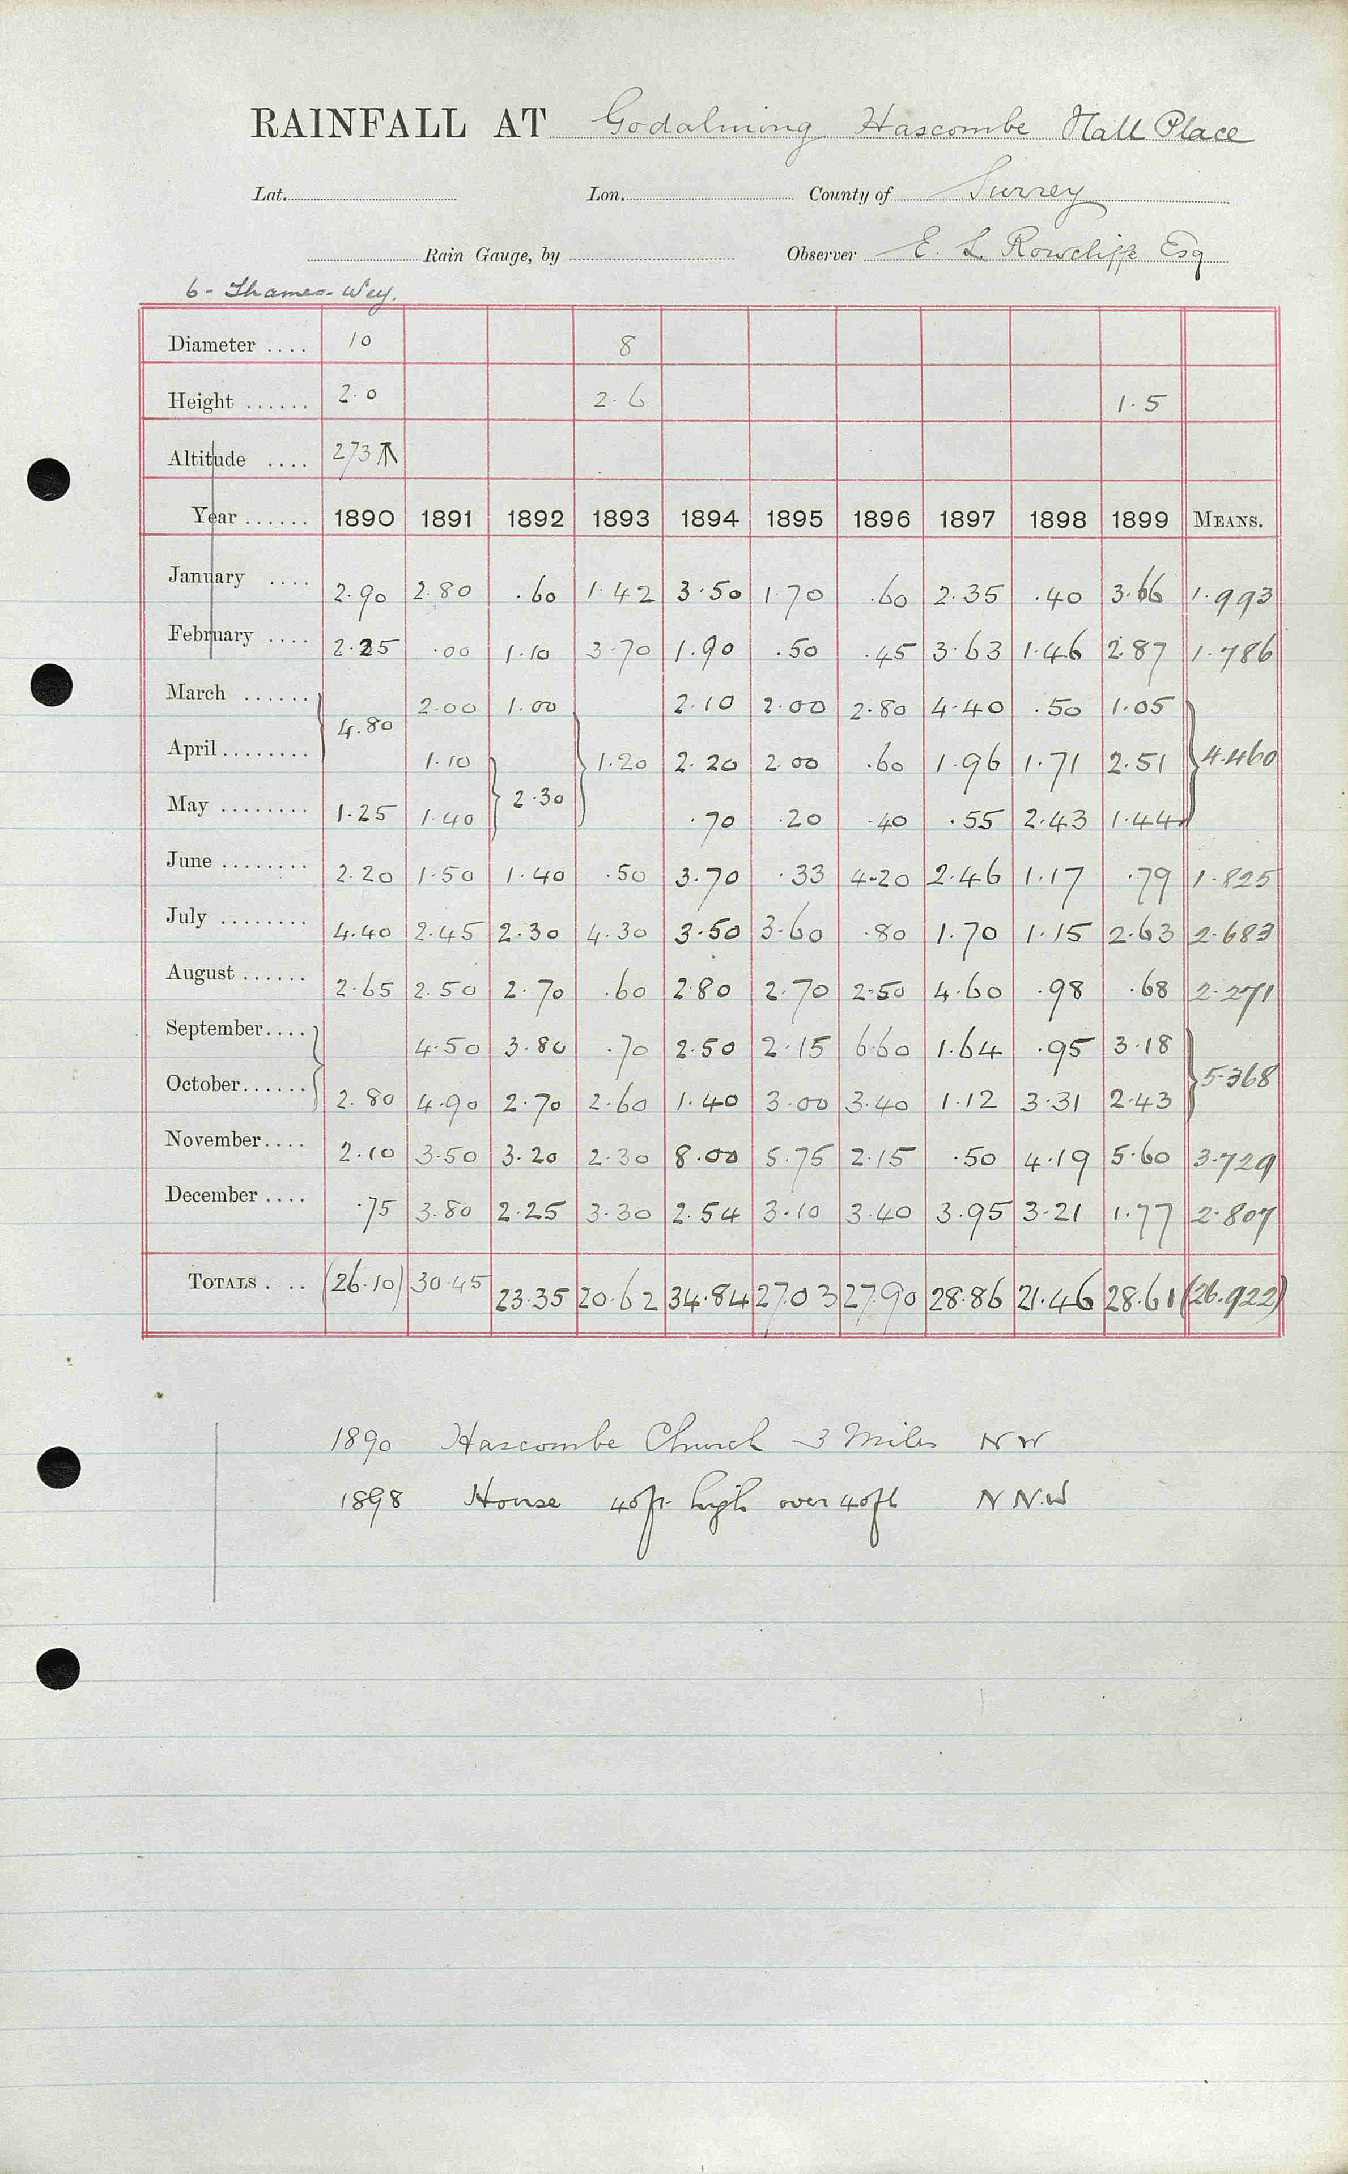 RAINFALL AT Godalming Hascombe Hall Place
Lat. Lon. County of Surrey
Rain Gauge, by Observer E. L. Rowcliffe Esq
6 - Thames - Wey.
Diameter .... 10 8
Height ...... 2.0 2.6 1.5
Altitude .... 273
Year ...... 1890 1891 1892 1893 1894 1895 1896 1897 1898 1899 MEANS.
January .... 2.90 2.80 .60 1.42 3.50 1.70 .60 2.35 .40 3.66 1.993
February .... 2.25 .00 1.10 3.70 1.90 .50 .45 3.63 1.46 2.87 1.786
March ...... 4.80 2.00 1.00 2.10 2.00 2.80 4.40 .50 1.05
April ........ 1.10 1.20 2.20 2.00 .60 1.96 1.71 2.51 4.460
May ........ 1.25 1.40 2.30 .70 .20 .40 .55 2.43 1.44
June ........ 2.20 1.50 1.40 .50 3.70 .33 4.20 2.46 1.17 .79 1.825
July ........ 4.40 2.45 2.30 4.30 3.50 3.60 .80 1.70 1.15 2.63 2.683
August ...... 2.65 2.50 2.70 .60 2.80 2.70 2.50 4.60 .98 .68 2.271
September.... 4.50 3.80 .70 2.50 2.15 6.60 1.64 .95 3.18
October...... 2.80 4.90 2.70 2.60 1.40 3.00 3.40 1.12 3.31 2.43 5.368
November.... 2.10 3.50 3.20 2.30 8.00 5.75 2.15 .50 4.19 5.60 3.729
December .... .75 3.80 2.25 3.30 2.54 3.10 3.40 3.95 3.21 1.77 2.807
TOTALS .... (26.10) 30.45 23.35 20.62 34.84 27.03 27.90 28.86 21.46 28.61 (26.922)
1890 Hascombe Church 3 Miles NW
1898 House 40ft. high over 40ft N N.W